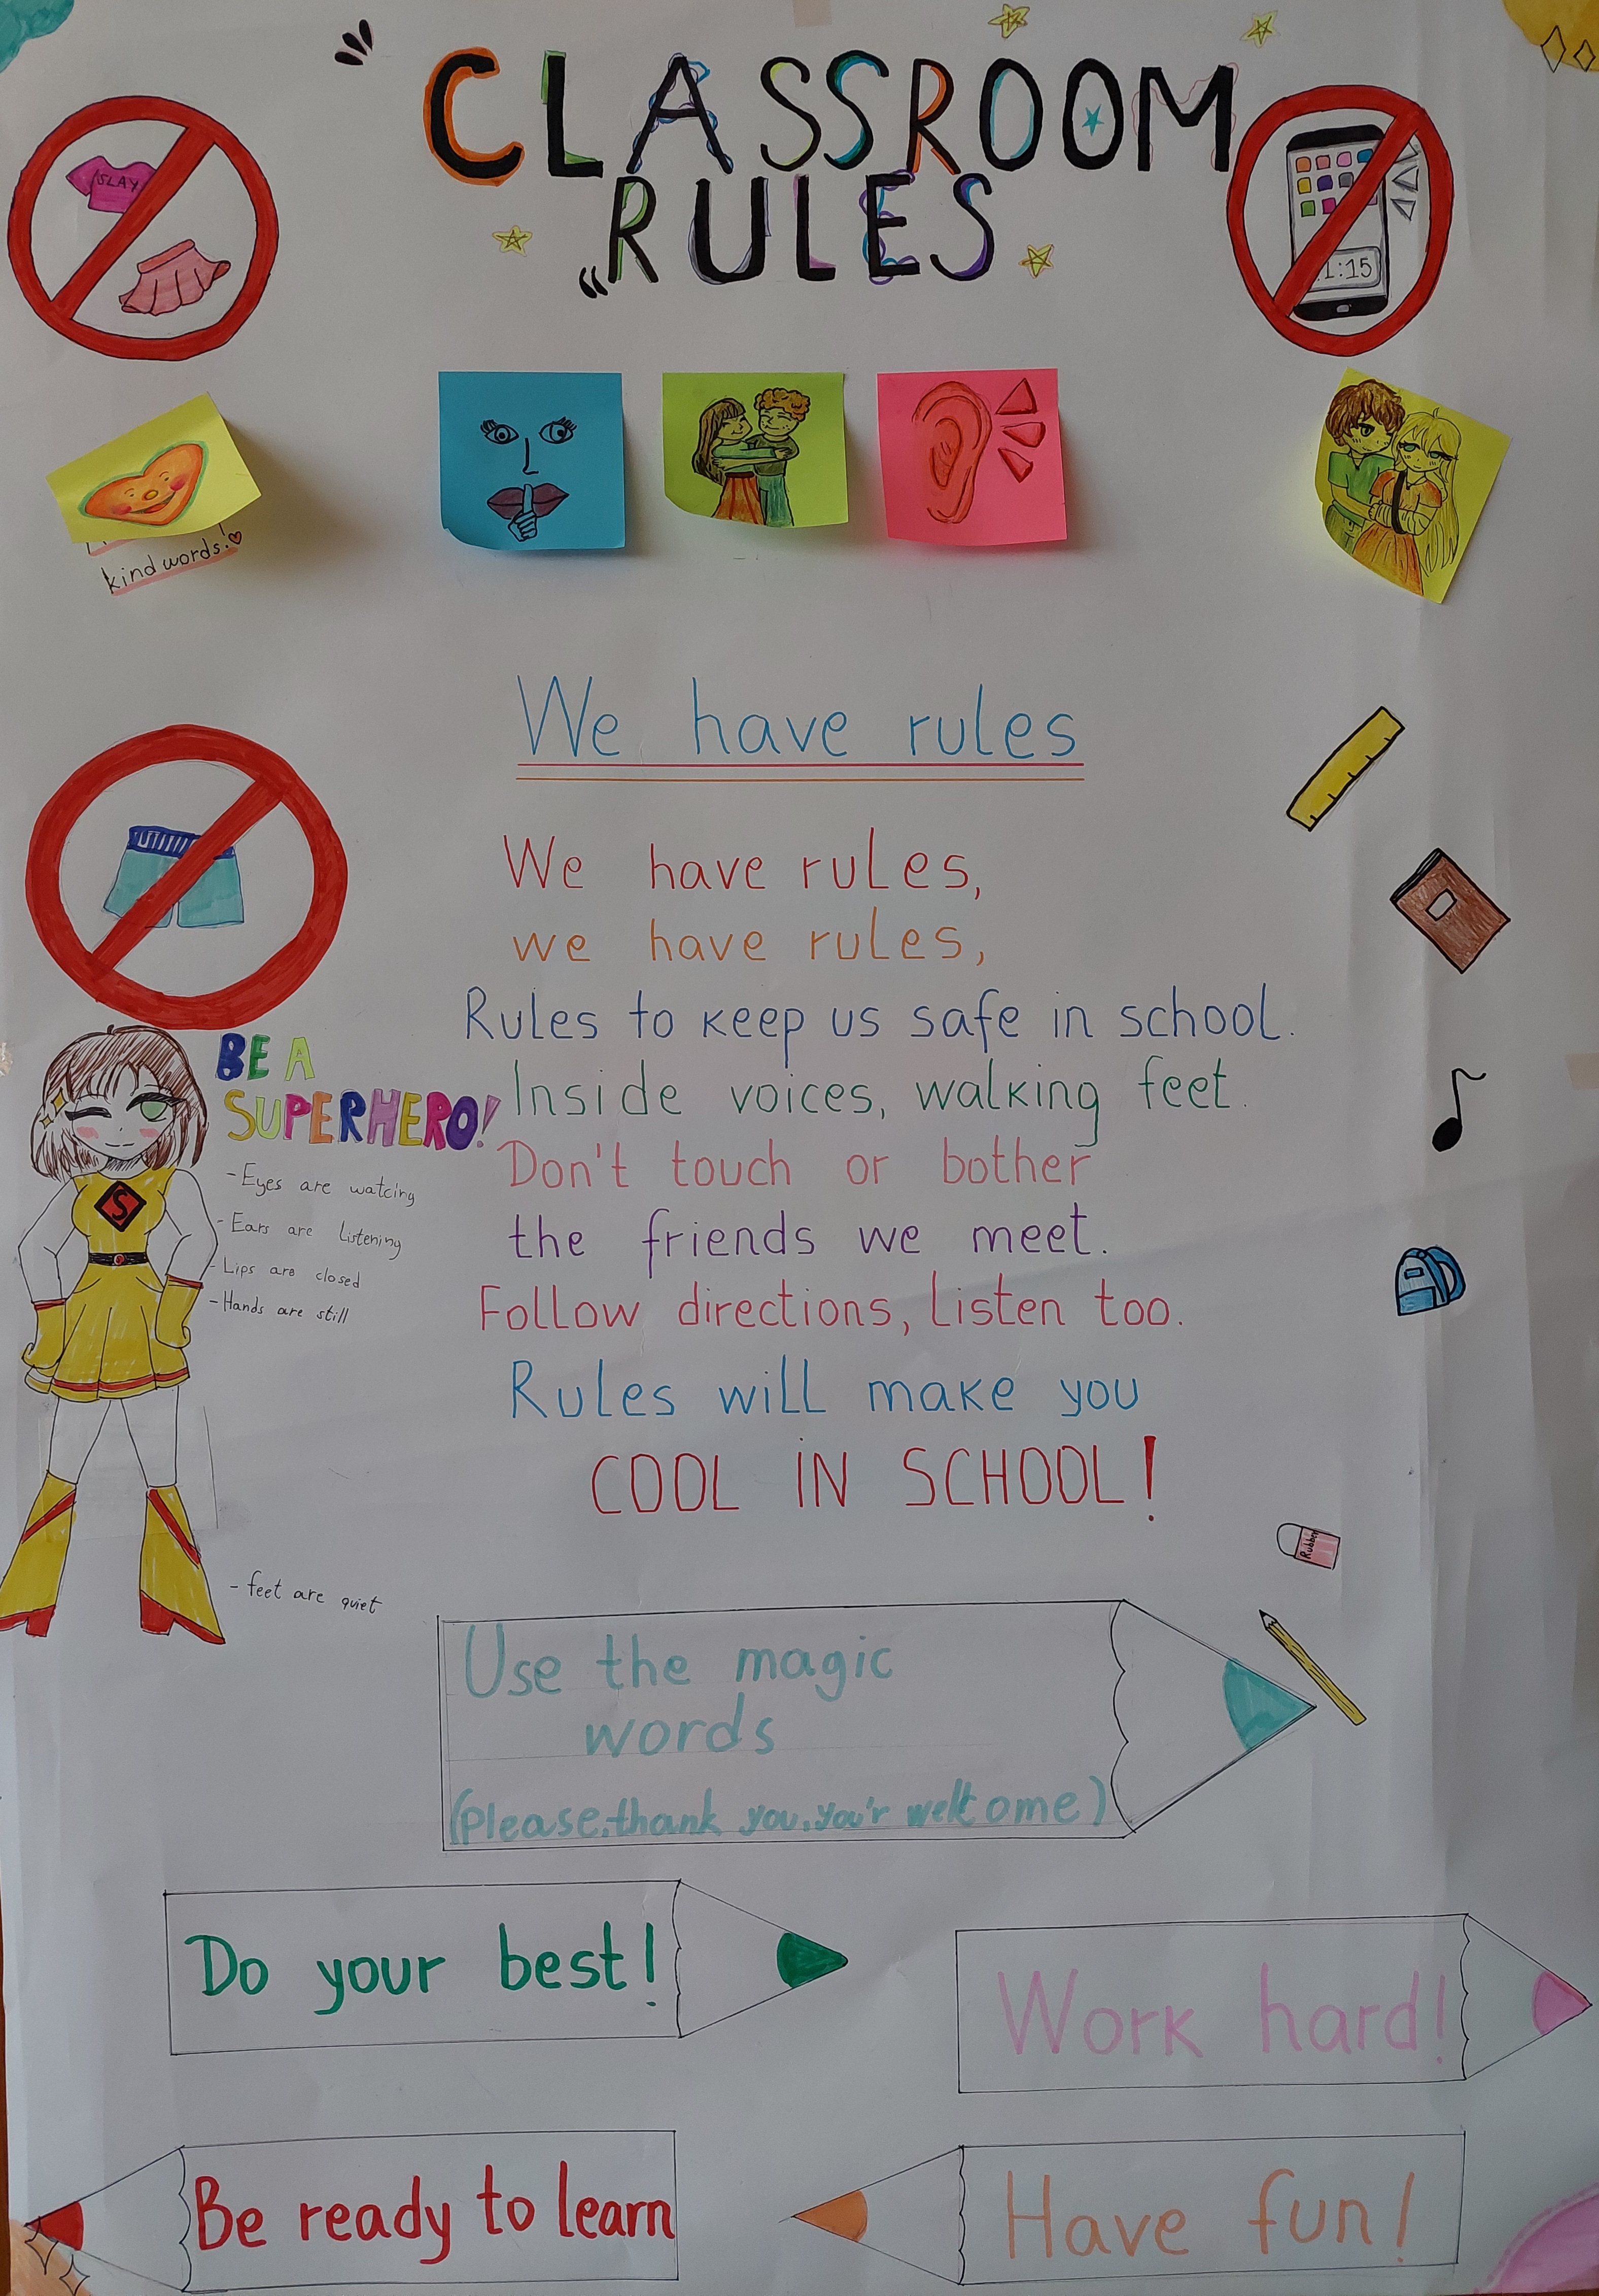 CLASSROOM
RULES
SLAY
1:15
kind words!
We have rules
We have rules,
we have rules,
Rules to keep us safe in school.
Inside voices, walking feet.
Don't touch or bother
the friends we meet.
Follow directions, Listen too.
Rules will make you
COOL IN SCHOOL!
BE A
SUPERHERO!
- Eyes are watcing
- Ears are listening
- Lips are closed
- Hands are still
- feet are quiet
S
Rubber
Use the magic
words
(please, thank you, you'r welcome)
Do your best!
Work hard!
Be ready to learn
Have fun!